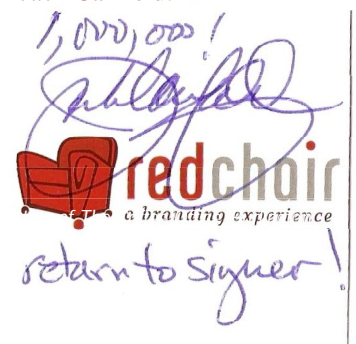 1,000,000!
redchair
a branding experience
return to signer!